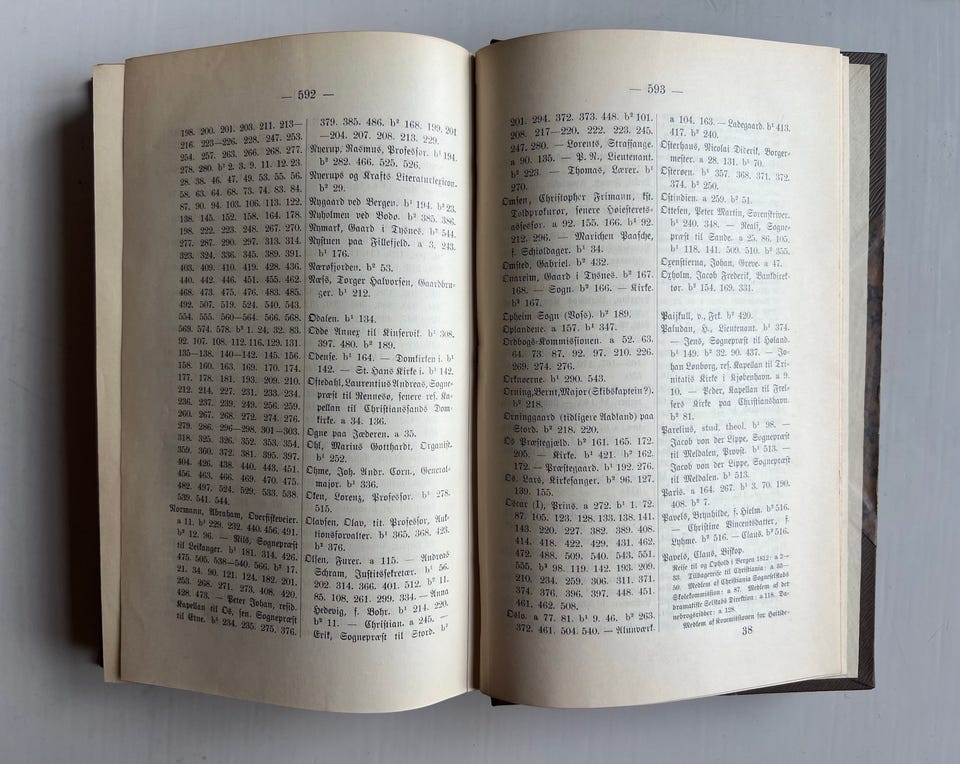 — 592 —
198. 200. 201. 203. 211. 213—
216. 223—226. 228. 247. 253.
254. 257. 263. 266. 268. 277.
278. 280. b² 2. 3. 9. 11. 12. 23.
28. 38. 46. 47. 49. 53. 55. 56.
58. 63. 64. 68. 73. 74. 83. 84.
87. 90. 94. 103. 106. 113. 122.
138. 145. 152. 158. 164. 178.
198. 222. 223. 248. 267. 270.
277. 287. 290. 297. 313. 314.
323. 324. 336. 345. 389. 391.
403. 409. 410. 419. 428. 436.
440. 442. 446. 451. 455. 462.
468. 473. 475. 476. 483. 485.
492. 507. 519. 524. 540. 543.
554. 555. 560—564. 566. 568.
569. 574. 578. b³ 1. 24. 32. 83.
92. 107. 108. 112. 116. 129. 131.
135—138. 140—142. 145. 156.
158. 160. 163. 169. 170. 174.
177. 178. 181. 193. 209. 210.
212. 214. 227. 231. 233. 234.
236. 237. 239. 249. 256. 259.
260. 267. 268. 272. 274. 276.
279. 286. 296—298. 301—303.
318. 325. 326. 352. 353. 354.
359. 360. 372. 381. 395. 397.
404. 426. 438. 440. 443. 451.
456. 463. 466. 469. 470. 475.
482. 497. 524. 529. 533. 538.
539. 541. 544.
Normann, Abraham, Overkisteveier.
a 11. b¹ 229. 232. 440. 456. 491.
b² 12. 96. — Nils, Sognepræst
til Leikanger. b¹ 181. 314. 426.
475. 505. 538—540. 566. b² 17.
21. 34. 90. 121. 124. 182. 201.
253. 268. 271. 273. 408. 420.
428. 473. — Peter Johan, resid.
Kapellan til Os, sen. Sognepræst
til Etne. b¹ 234. 235. 275. 376.
379. 385. 486. b² 168. 199. 201
—204. 207. 208. 213. 229.
Nyerup, Rasmus, Professor. b¹ 194.
b² 282. 466. 525. 526.
Nyerups og Krafts Literaturlexicon.
b² 29.
Nygaard ved Bergen. b¹ 194. b² 23.
Nyholmen ved Bodø. b² 385. 386.
Nymark, Gaard i Tysnes. b¹ 544.
Nystuen paa Fillefjeld. a 3. 243.
b¹ 176.
Nærøfjorden. b² 53.
Næss, Torger Halvorsen, Gaardbru-
ger. b¹ 212.
Odalen. b¹ 134.
Odde Annex til Kinservik. b¹ 308.
397. 480. b² 189.
Odense. b¹ 164. — Domkirken i. b¹
142. — St. Hans Kirke i. b¹ 142.
Oftedahl, Laurentius Andreas, Sogne-
præst til Rennesø, senere res. Ka-
pellan til Christiansands Dom-
kirke. a 34. 136.
Ogne paa Jæderen. a 35.
Ohl, Marius Gotthardt, Organist.
b¹ 252.
Ohme, Joh. Andr. Corn., General-
major. b¹ 336.
Oken, Lorenz, Professor. b¹ 278.
515.
Olavsen, Olav, tit. Professor, Auk-
tionsforvalter. b¹ 365. 368. 423.
b² 376.
Olsen, Furer. a 115. — Andreas
Schram, Justitssekretær. b¹ 56.
202. 314. 366. 401. 512. b² 11.
85. 108. 261. 299. 334. — Anna
Hedevig, f. Bohr. b¹ 214. 220.
b² 11. — Christian. a 245. —
Erik, Sognepræst til Stord. b¹
— 593 —
201. 294. 372. 373. 448. b² 101.
208. 217—220. 222. 223. 245.
247. 280. — Lorents, Straffange.
a 90. 135. — P. N., Lieutenant.
b² 223. — Thomas, Lærer. b¹
270.
Omsen, Christopher Frimann, fst.
Toldprokuror, senere Høiesterets-
assessor. a 92. 155. 166. b¹ 92.
212. 296. — Marichen Paasche,
f. Schioldager. b¹ 34.
Omsted, Gabriel. b² 432.
Onareim, Gaard i Tysnes. b² 167.
168. — Sogn. b² 166. — Kirke.
b² 167.
Opheim Sogn (Voss). b² 189.
Oplandene. a 157. b¹ 347.
Ordbogs-Kommissionen. a 52. 63.
64. 73. 87. 92. 97. 210. 226.
269. 274. 276.
Orknøerne. b¹ 290. 543.
Orning, Bernt, Major (Skibskaptein?).
b² 218.
Orninggaard (tidligere Aadland) paa
Stord. b² 218. 220.
Os Præstegjæld. b² 161. 165. 172.
205. — Kirke. b¹ 421. b² 162.
172. — Præstegaard. b¹ 192. 276.
Os, Lars, Kirkesanger. b² 96. 127.
139. 155.
Oscar (I), Prins. a 272. b¹ 1. 72.
87. 105. 123. 128. 133. 138. 141.
143. 220. 227. 382. 389. 408.
414. 418. 422. 429. 431. 462.
472. 488. 509. 540. 543. 551.
555. b² 98. 119. 142. 193. 209.
210. 234. 259. 306. 311. 371.
374. 376. 396. 397. 448. 451.
461. 462. 508.
Oslo. a 77. 81. b¹ 9. 46. b² 263.
372. 461. 504. 540. — Alunværk.
a 104. 163. — Ladegaard. b¹ 413.
417. b² 240.
Osterhaus, Nicolai Diderik, Borger-
mester. a 28. 131. b¹ 70.
Osterøen. b¹ 357. 368. 371. 372.
374. b² 250.
Ostindien. a 259. b² 51.
Ottesen, Peter Martin, Sorenskriver.
b¹ 240. 348. — Realf, Sogne-
præst til Sande. a 25. 86. 105.
b¹ 118. 141. 509. 510. b² 355.
Oxenstierna, Johan, Greve. a 47.
Oxholm, Jacob Frederik, Bankdirek-
tør. b² 154. 169. 331.
Paijkull, v., Frk. b² 420.
Paludan, H., Lieutenant. b¹ 374.
— Jens, Sognepræst til Høland.
b¹ 149. b² 32. 90. 437. — Jo-
han Lønborg, res. Kapellan til Tri-
nitatis Kirke i Kjøbenhavn. a 9.
10. — Peder, Kapellan til Frel-
sers Kirke paa Christianshavn.
b² 81.
Parelius, stud. theol. b¹ 98. —
Jacob von der Lippe, Sognepræst
til Meldalen, Provst. b¹ 513. —
Jacob von der Lippe, Sognepræst
til Meldalen. b¹ 513.
Paris. a 164. 267. b¹ 3. 70. 190.
408. b² 7.
Pavels, Brynhilde, f. Hjelm. b² 516.
— Christine Vincentsdatter, f.
Lyhme. b² 516. — Claus. b² 516.
Pavels, Claus, Biskop.
Reise til og Ophold i Bergen 1812: a 2—
33. Tilbagereise til Christiania: a 33—
50. Medlem af Christiania Sogneselskabs
Skolekommission: a 87. Medlem af det
dramatiske Selskabs Direktion: a 118. Da-
nebrogsridder: a 128.
Medlem af Kommissionen for Høitide-
38